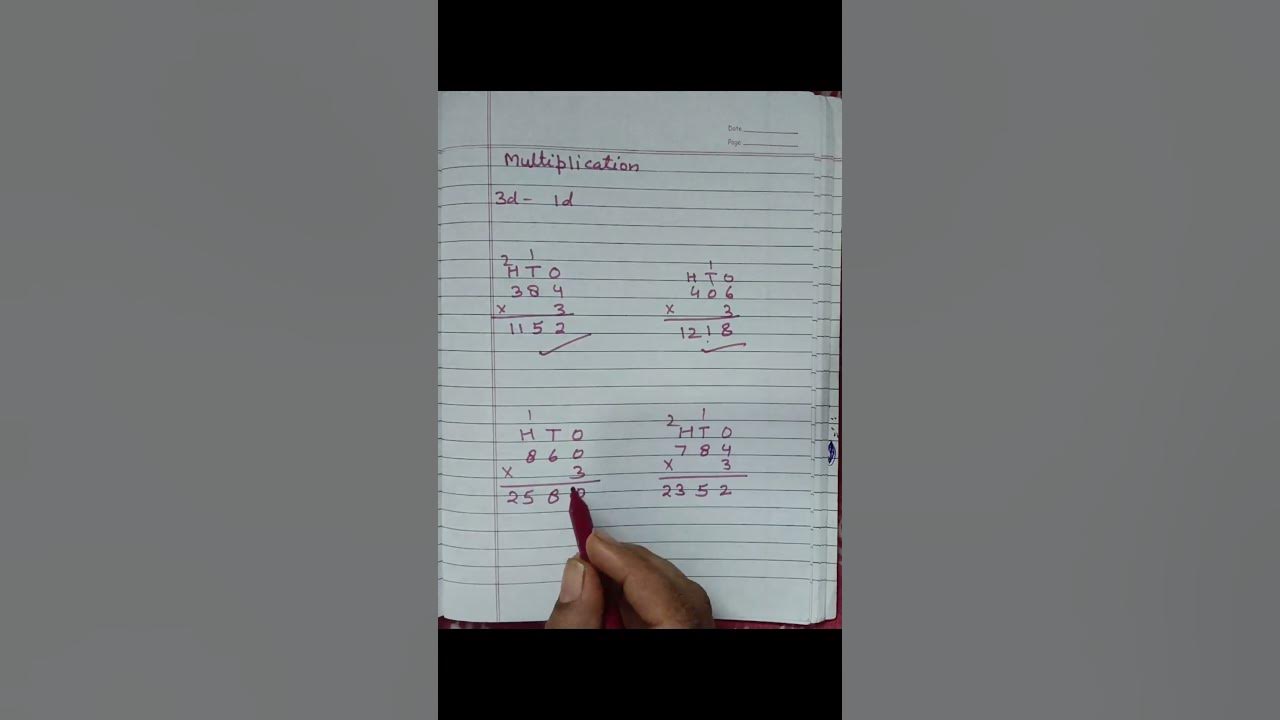 Date
Page:
Multiplication
3d - 1d
2 1
H T O
3 8 4
x 3
1 1 5 2
1
H T O
4 0 6
x 3
1 2 1 8
1
H T O
8 6 0
x 3
2 5 8 0
2 1
H T O
7 8 4
x 3
2 3 5 2